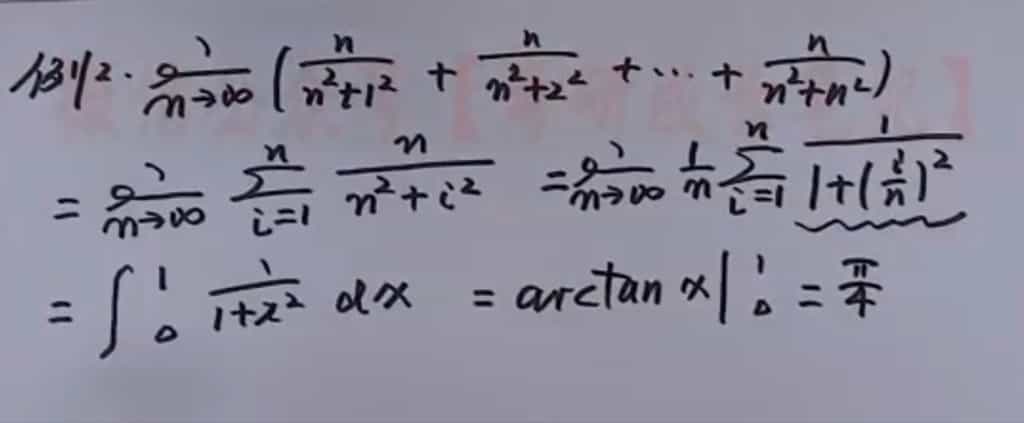 例2. lim n→∞ (n/(n²+1²) + n/(n²+2²) + ··· + n/(n²+n²))
= lim n→∞ ∑ i=1 n n/(n²+i²) = lim n→∞ 1/n ∑ i=1 n 1/(1+(i/n)²)
= ∫₀¹ 1/(1+x²) dx = arctan x |₀¹ = π/4